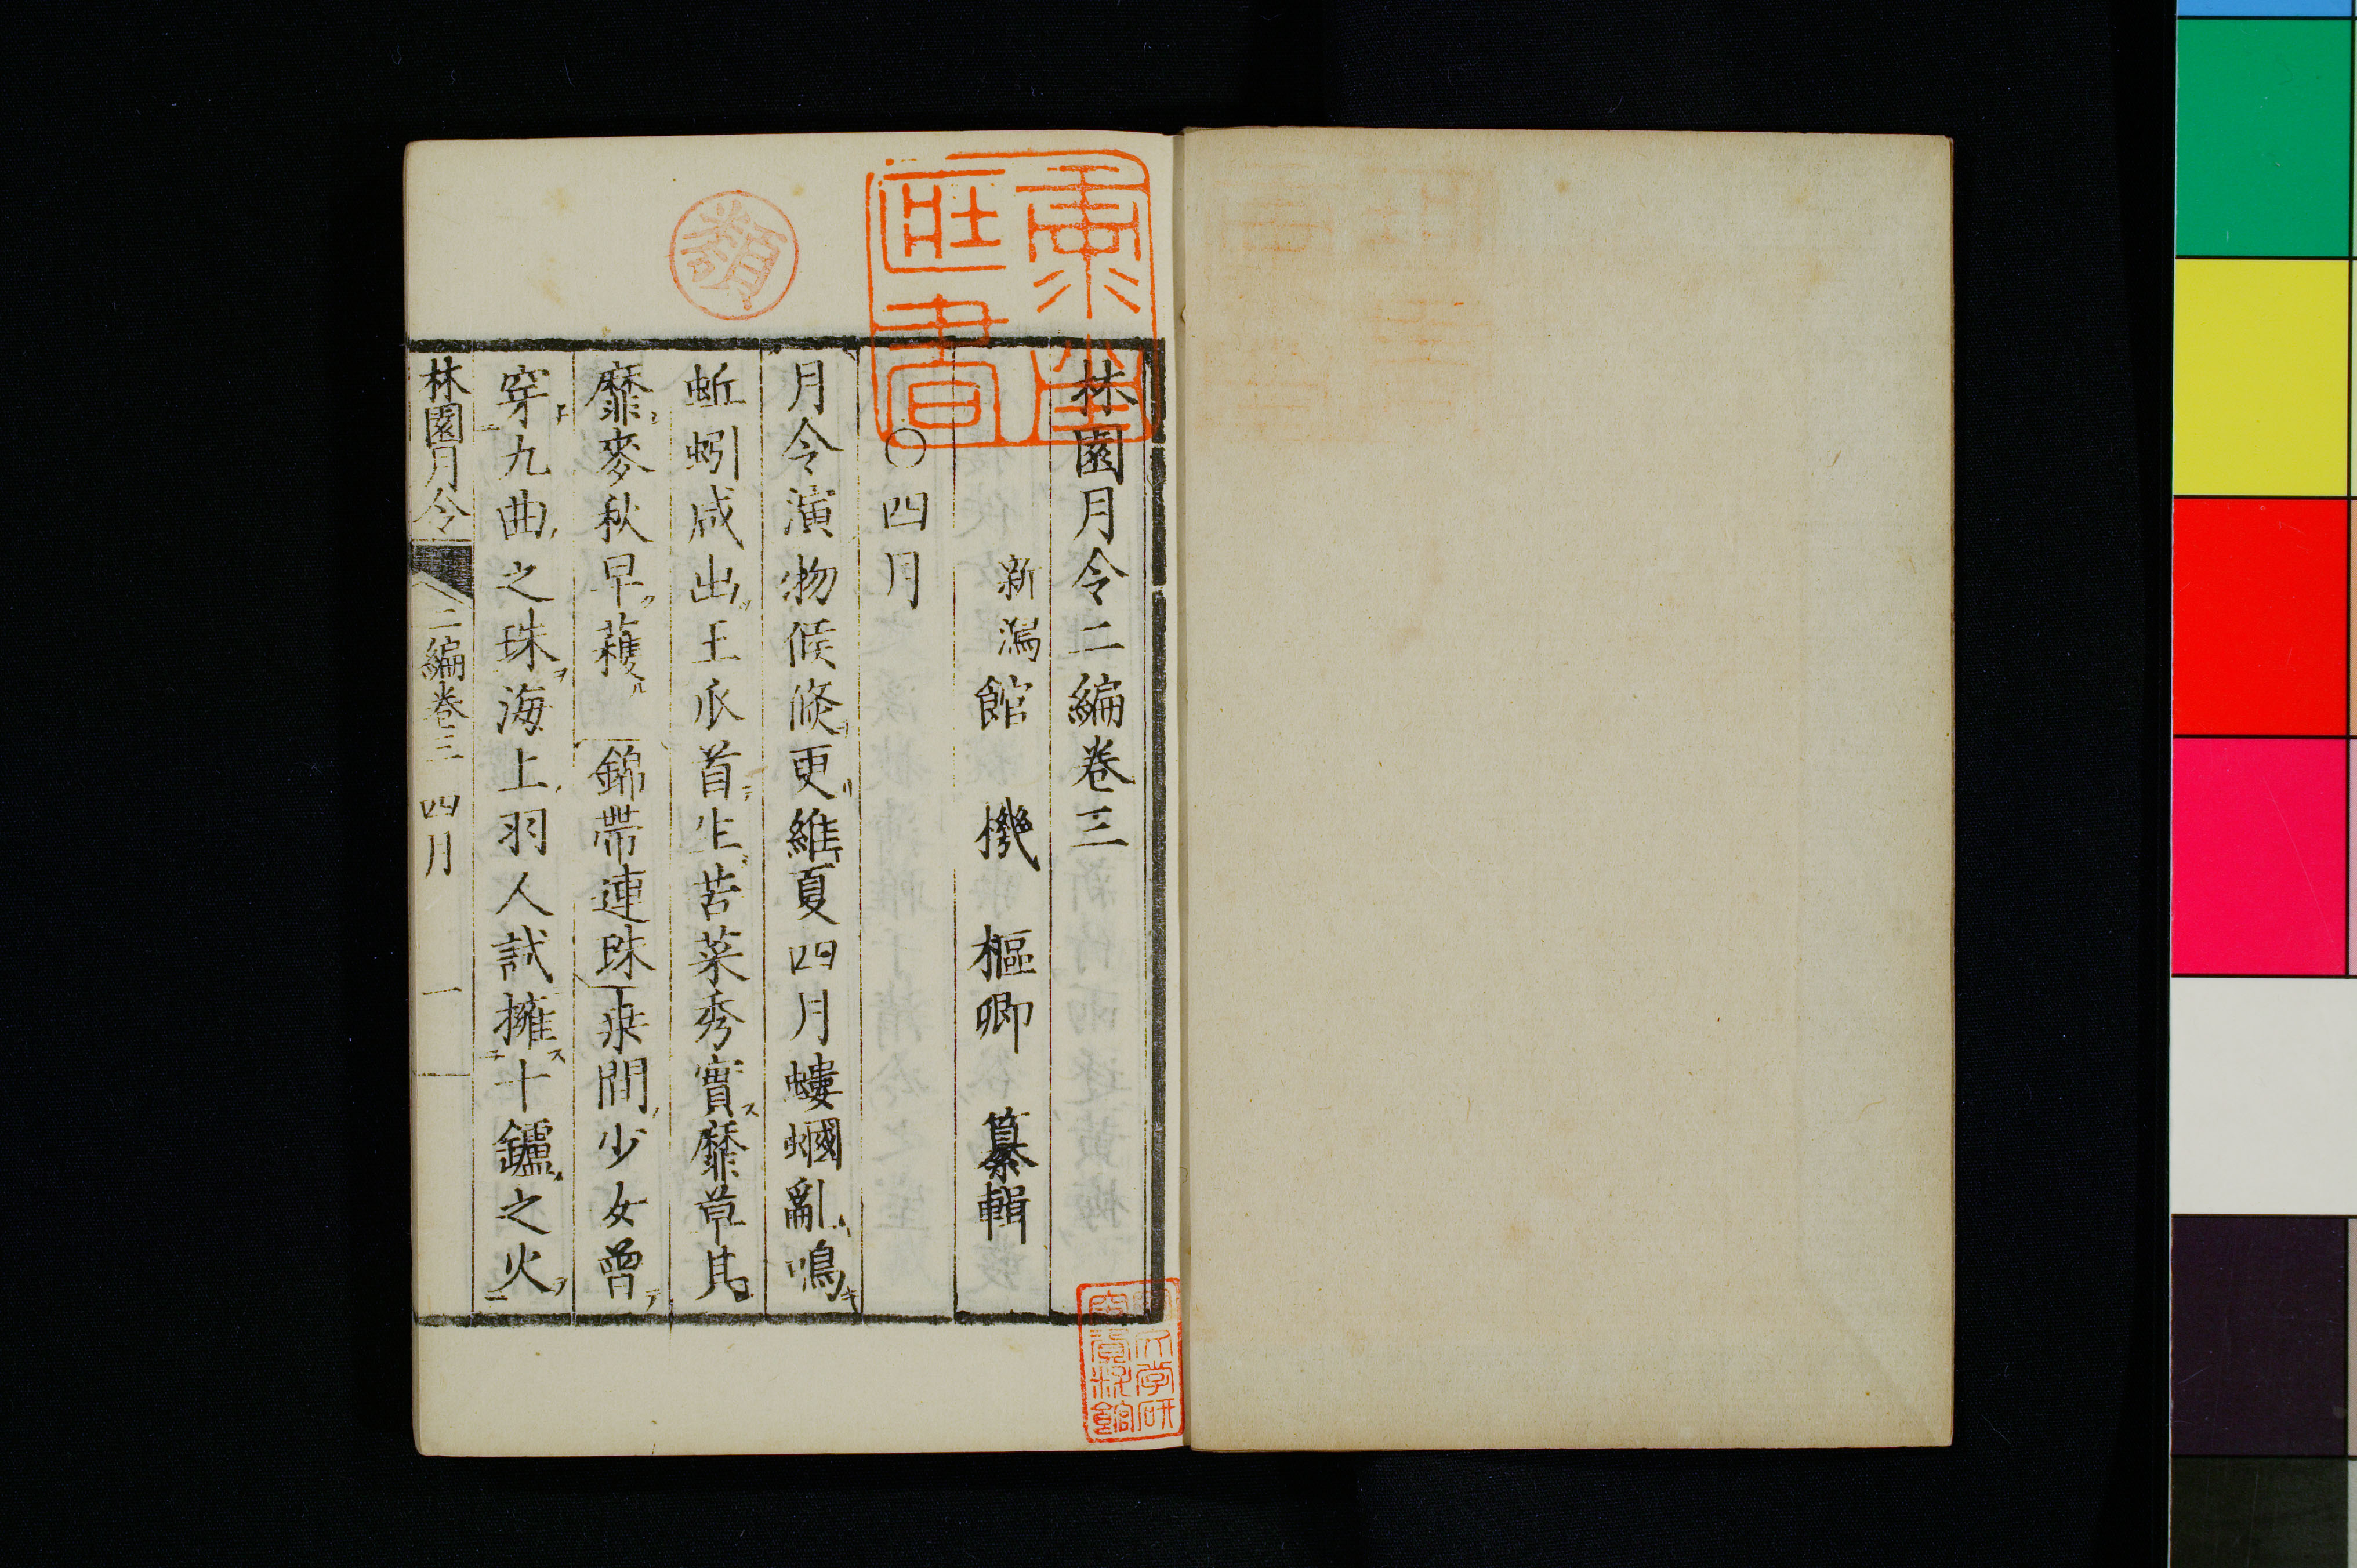 林園月令二編卷三
新潟 館 機 樞卿 纂輯
〇四月
月令演物候倐更維夏四月螻蟈亂鳴
蚯蚓咸出王瓜首生苦菜秀實靡草具
靡麥秋早穫 錦帶連珠桒間少女曾
穿九曲之珠海上羽人試擁十鑪之火
林園月令 二編卷三 四月 一